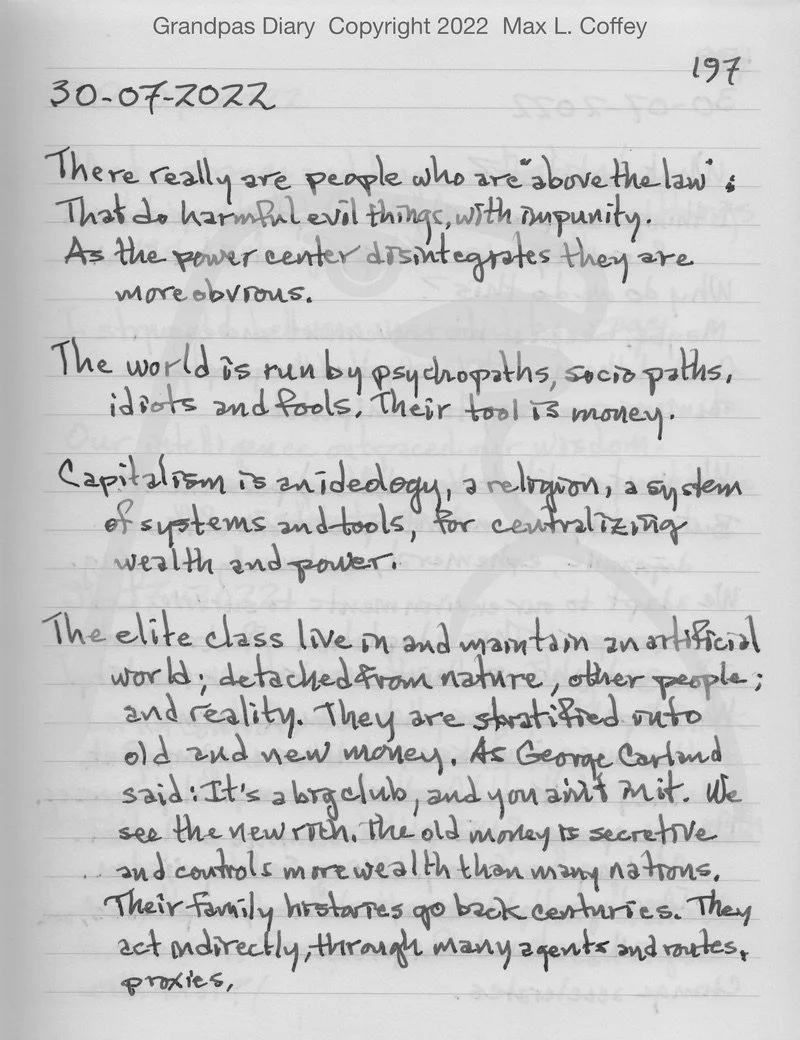 Grandpas Diary Copyright 2022 Max L. Coffey
197
30-07-2022
There really are people who are "above the law" ;
That do harmful evil things, with impunity.
As the power center disintegrates they are
more obvious.
The world is run by psychopaths, sociopaths,
idiots and fools. Their tool is money.
Capitalism is an ideology, a religion, a system
of systems and tools, for centralizing
wealth and power.
The elite class live in and maintain an artificial
world; detached from nature, other people;
and reality. They are stratified into
old and new money. As George Carland
said: It's a big club, and you ain't in it. We
see the new rich. The old money is secretive
and controls more wealth than many nations.
Their family histories go back centuries. They
act indirectly, through many agents and routes,
proxies,